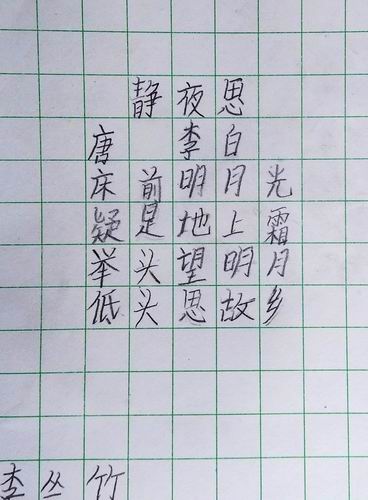 静夜思
唐 李白
床前明月光
疑是地上霜
举头望明月
低头思故乡
李丛竹